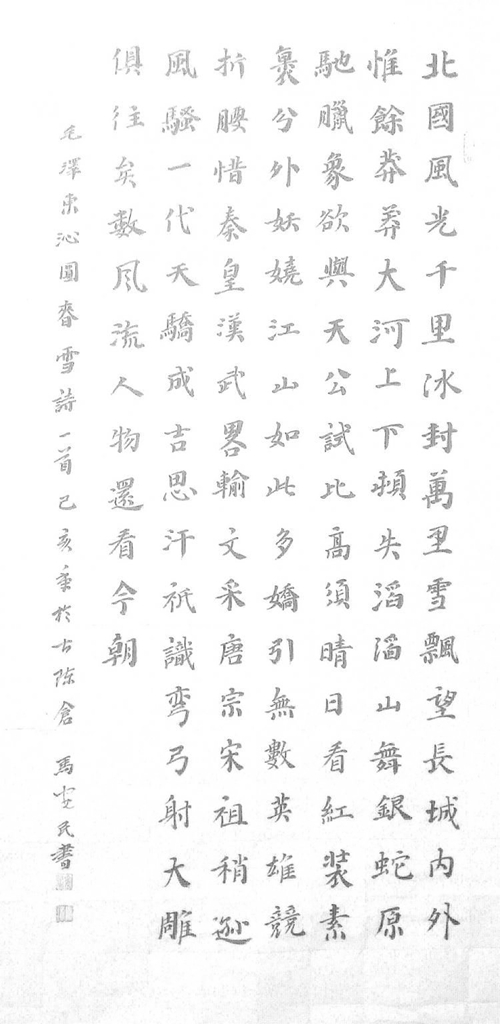 北國風光千里冰封萬里雪飄望長城內外
惟餘莽莽大河上下頓失滔滔山舞銀蛇原
馳臘象欲與天公試比高須晴日看紅装素
裹分外妖嬈江山如此多嬌引無數英雄競
折腰惜秦皇漢武畧輸文采唐宗宋祖稍遜
風騷一代天驕成吉思汗祇識彎弓射大雕
俱往矣數風流人物還看今朝
毛澤東沁園春雪詩一首己亥年於古陈倉 馬 民書